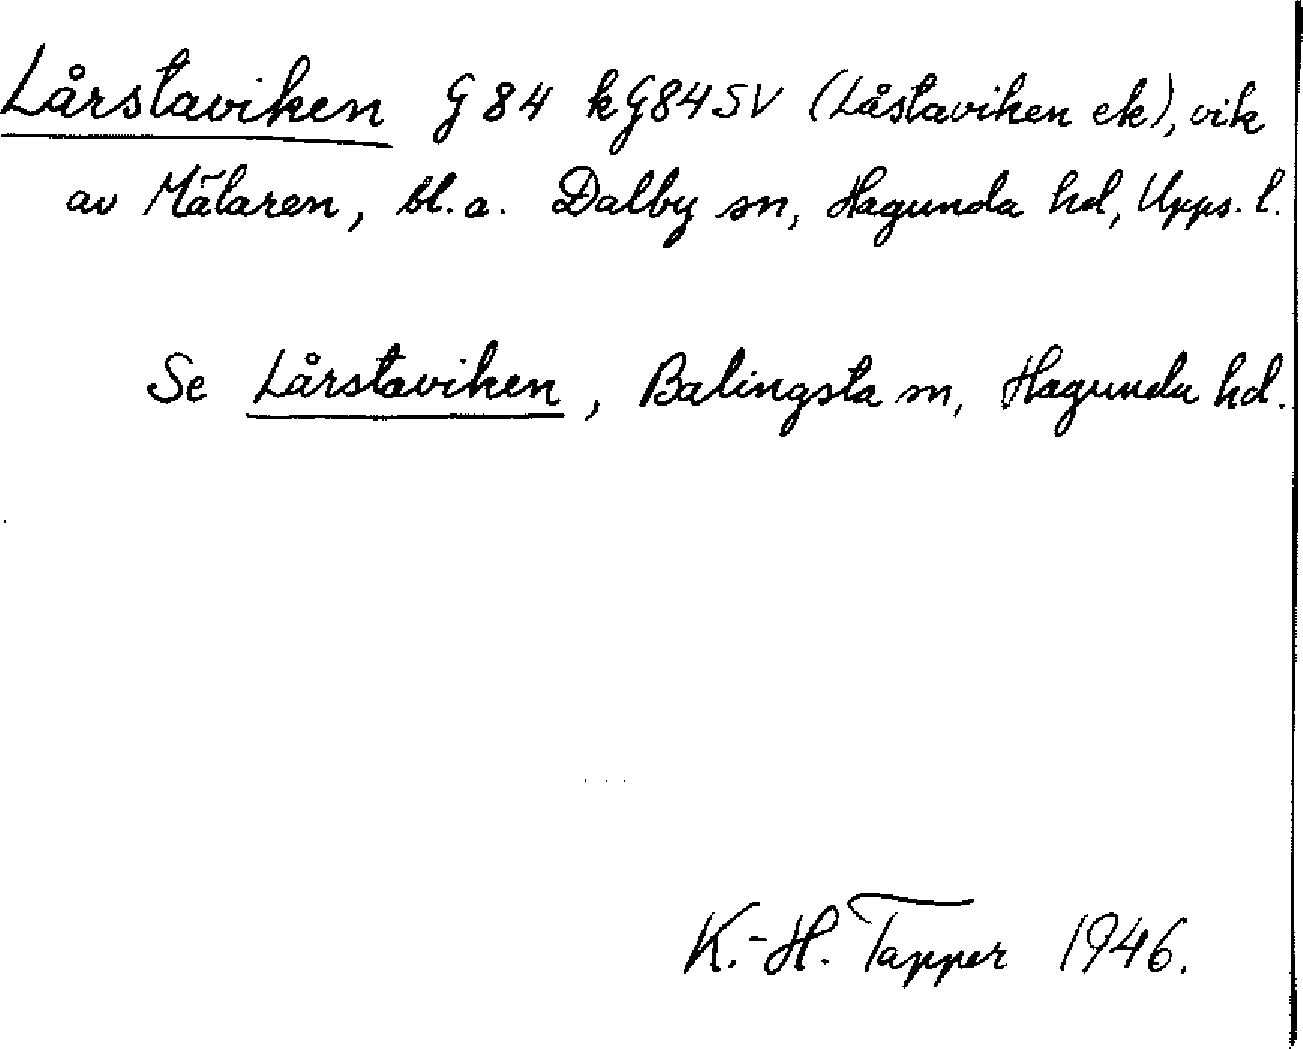 Lårstaviken G 84 kG84SV (Låstaviken ek), vik
av Mälaren, bl. a. Dalby sn, Hagunda hd, Upps. l.
Se Lårstaviken, Balingsta sn, Hagunda hd.
K.-H. Tapper 1946.